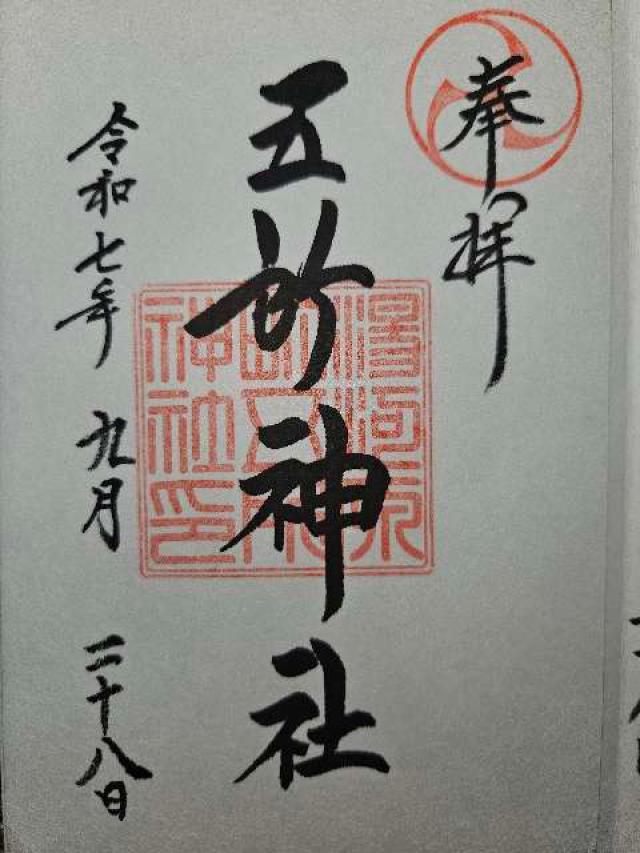 奉拝
五所神社
湯河原
町五所
神社印
令和七年九月二十八日